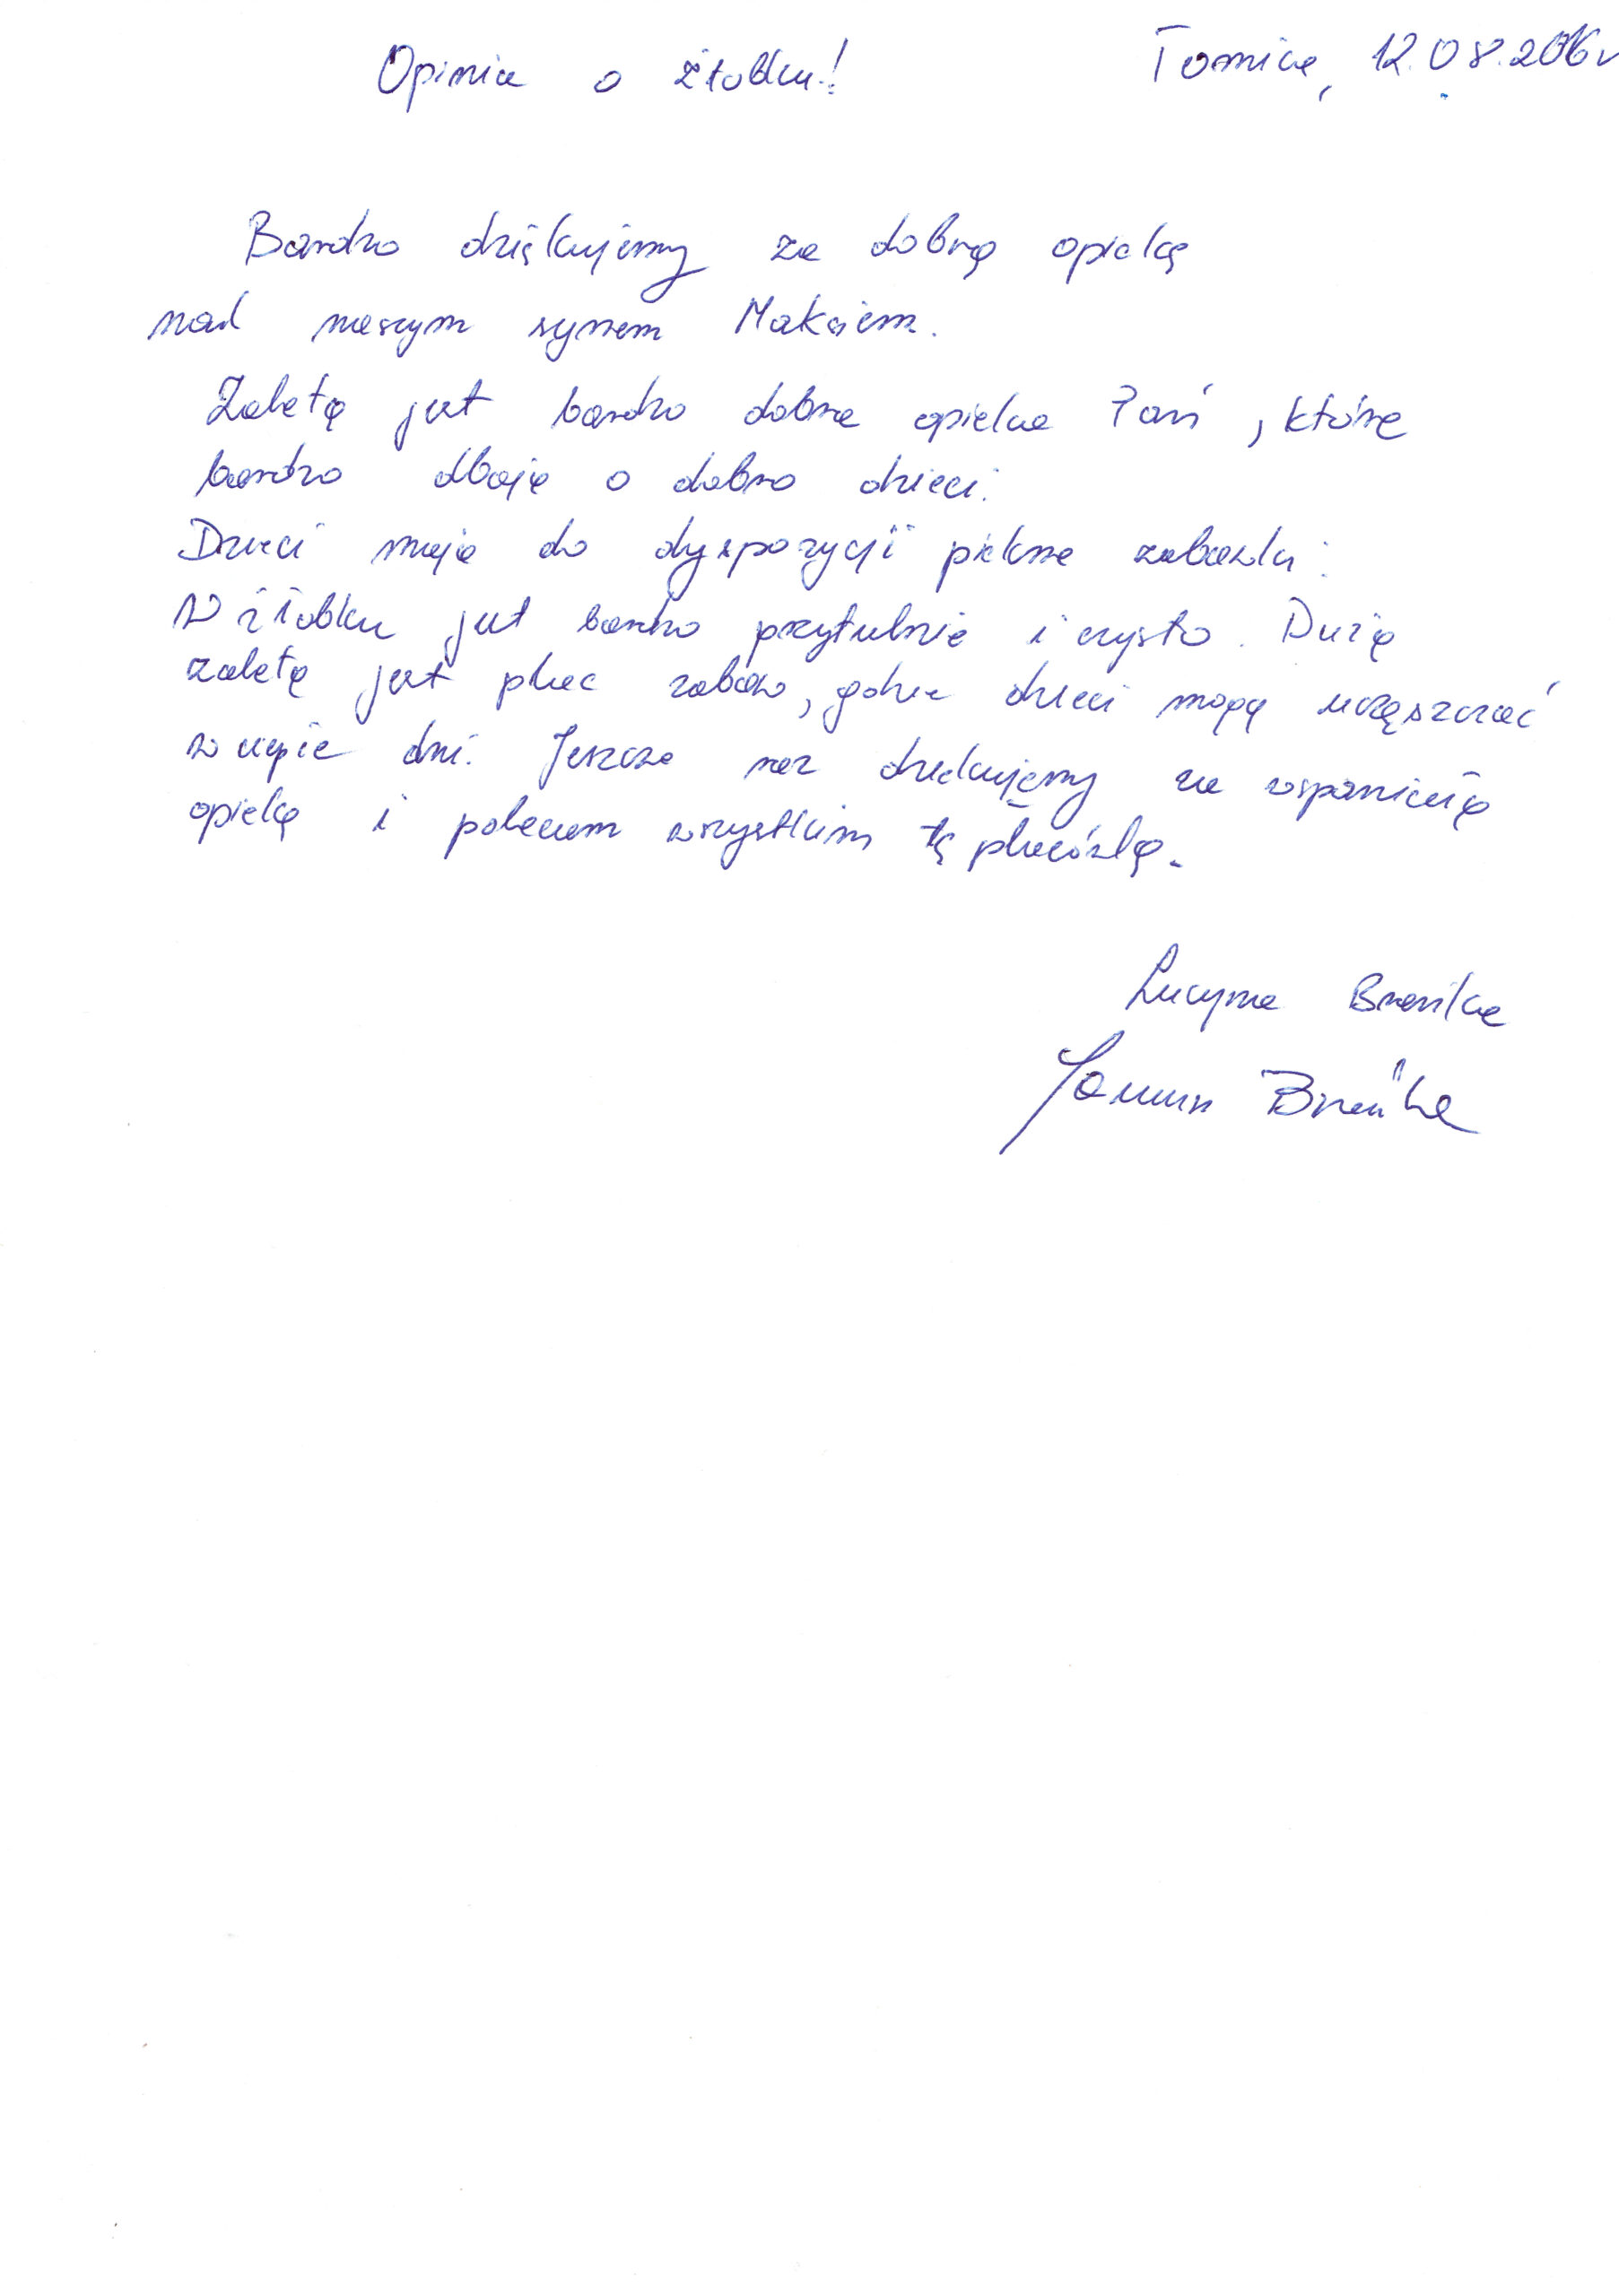 Opinia o żłobku! Tomice, 12.08.2016r
Bardzo dziękujemy za dobrą opiekę
nad naszym synem Maksiem.
Zaletą jest bardzo dobra opieka Pań, które
bardzo dbają o dobro dzieci.
Dzieci mają do dyspozycji piękne zabawki.
W żłobku jest bardzo przytulnie i czysto. Dużą
zaletą jest plac zabaw, gdzie dzieci mogą uczęszczać
w ciepłe dni. Jeszcze raz dziękujemy za wspaniałą
opiekę i polecam wszystkim tę placówkę.
Lucyna
Janusz